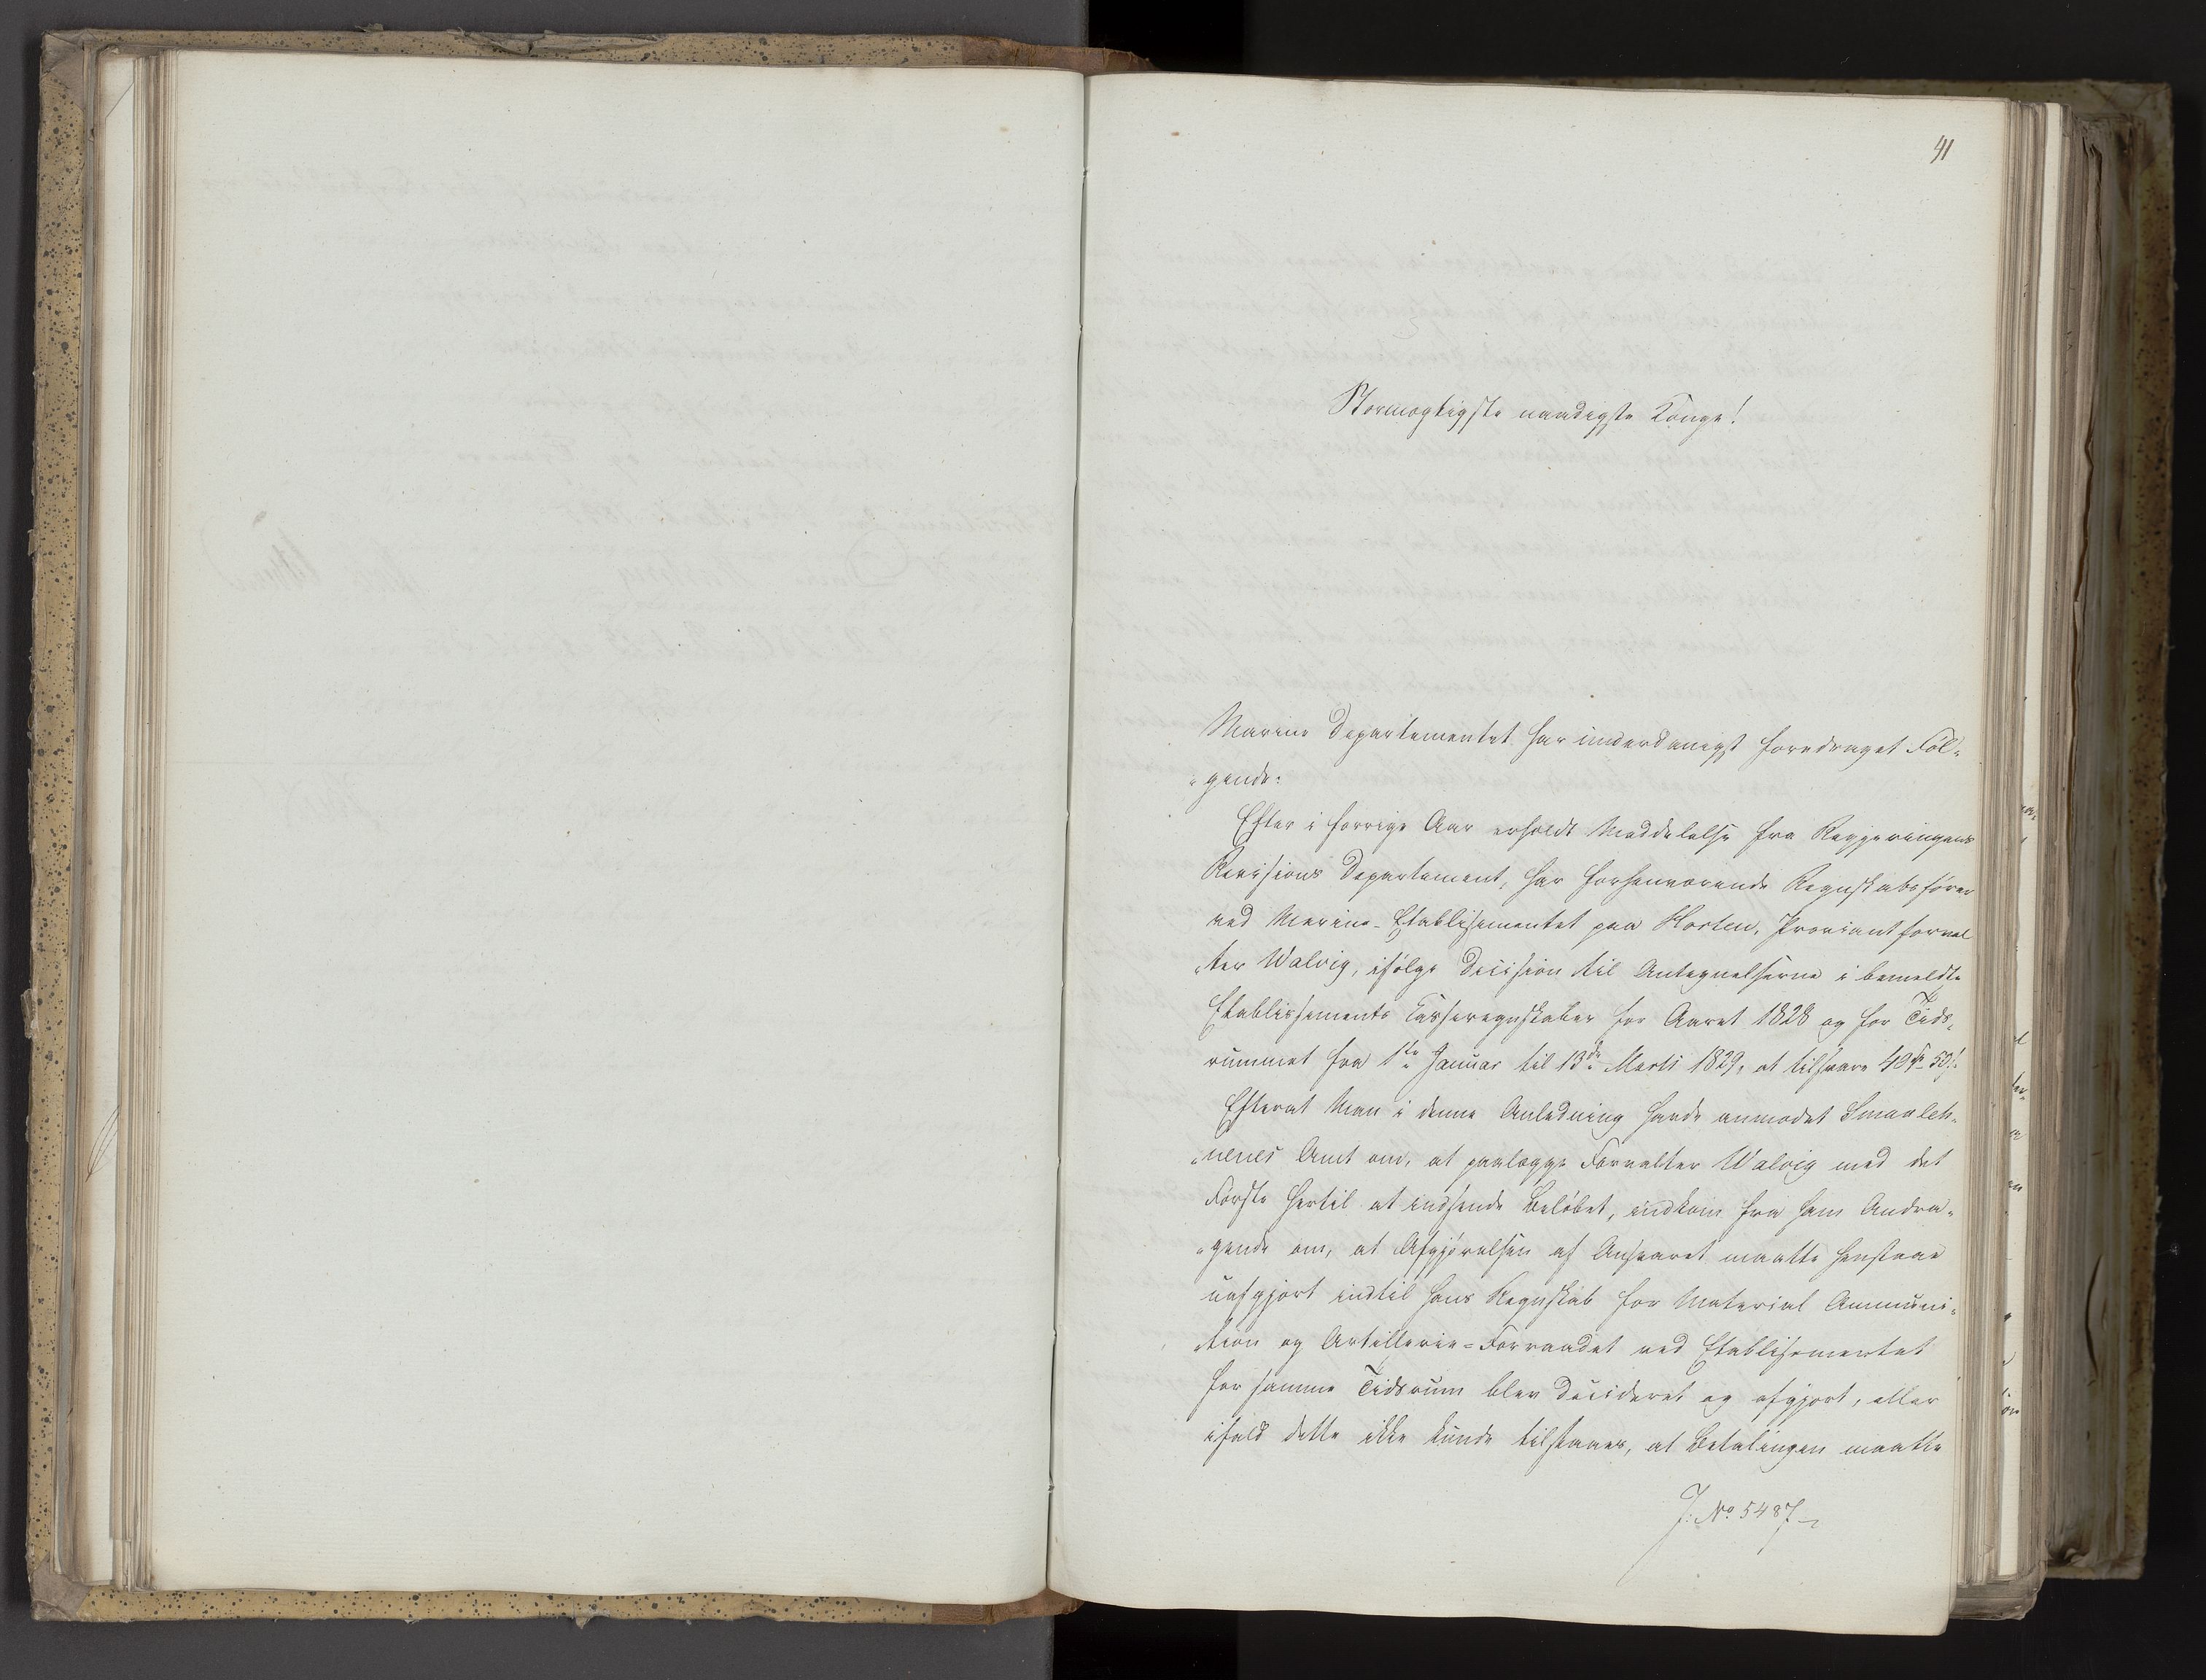 41
Stormægtigste naadigste Konge!
Marine Departementet har underdanigst foredraget Føl-
"gende:
Efter i forrige Aar erholdt Meddelelse fra Regjeringens
Revisions Departement, har forhenværende Regnskabsfører
ved Marine-Etablissementet paa Horten, Proviantforval
"ter Walvig, ifølge Decision til Antegnelserne i bemeldte
Etablissements Casseregnskaber for Aaret 1828 og for Tids-
rummet fra 1ste Januar til 13de Marts 1829, at tilsvare 49 Sp 50 s.
Efterat Man i denne Anledning havde anmodet Smaaleh-
"nenes Amt om, at paalægge Forvalter Walvig med det
Første hertil at indsende Beløbet, indkom fra ham Andra-
"gende om, at Afgjørelsen af Ansvaret maatte henstaae
uafgjort indtil hans Regnskab for Material Ammuni-
"tion og Artillerie=Forraadet ved Etablissementet
for samme Tidsrum blev decideret og afgjort, eller
ifald dette ikke kunde tilstaaes, at Betalingen maatte
J: No 5487